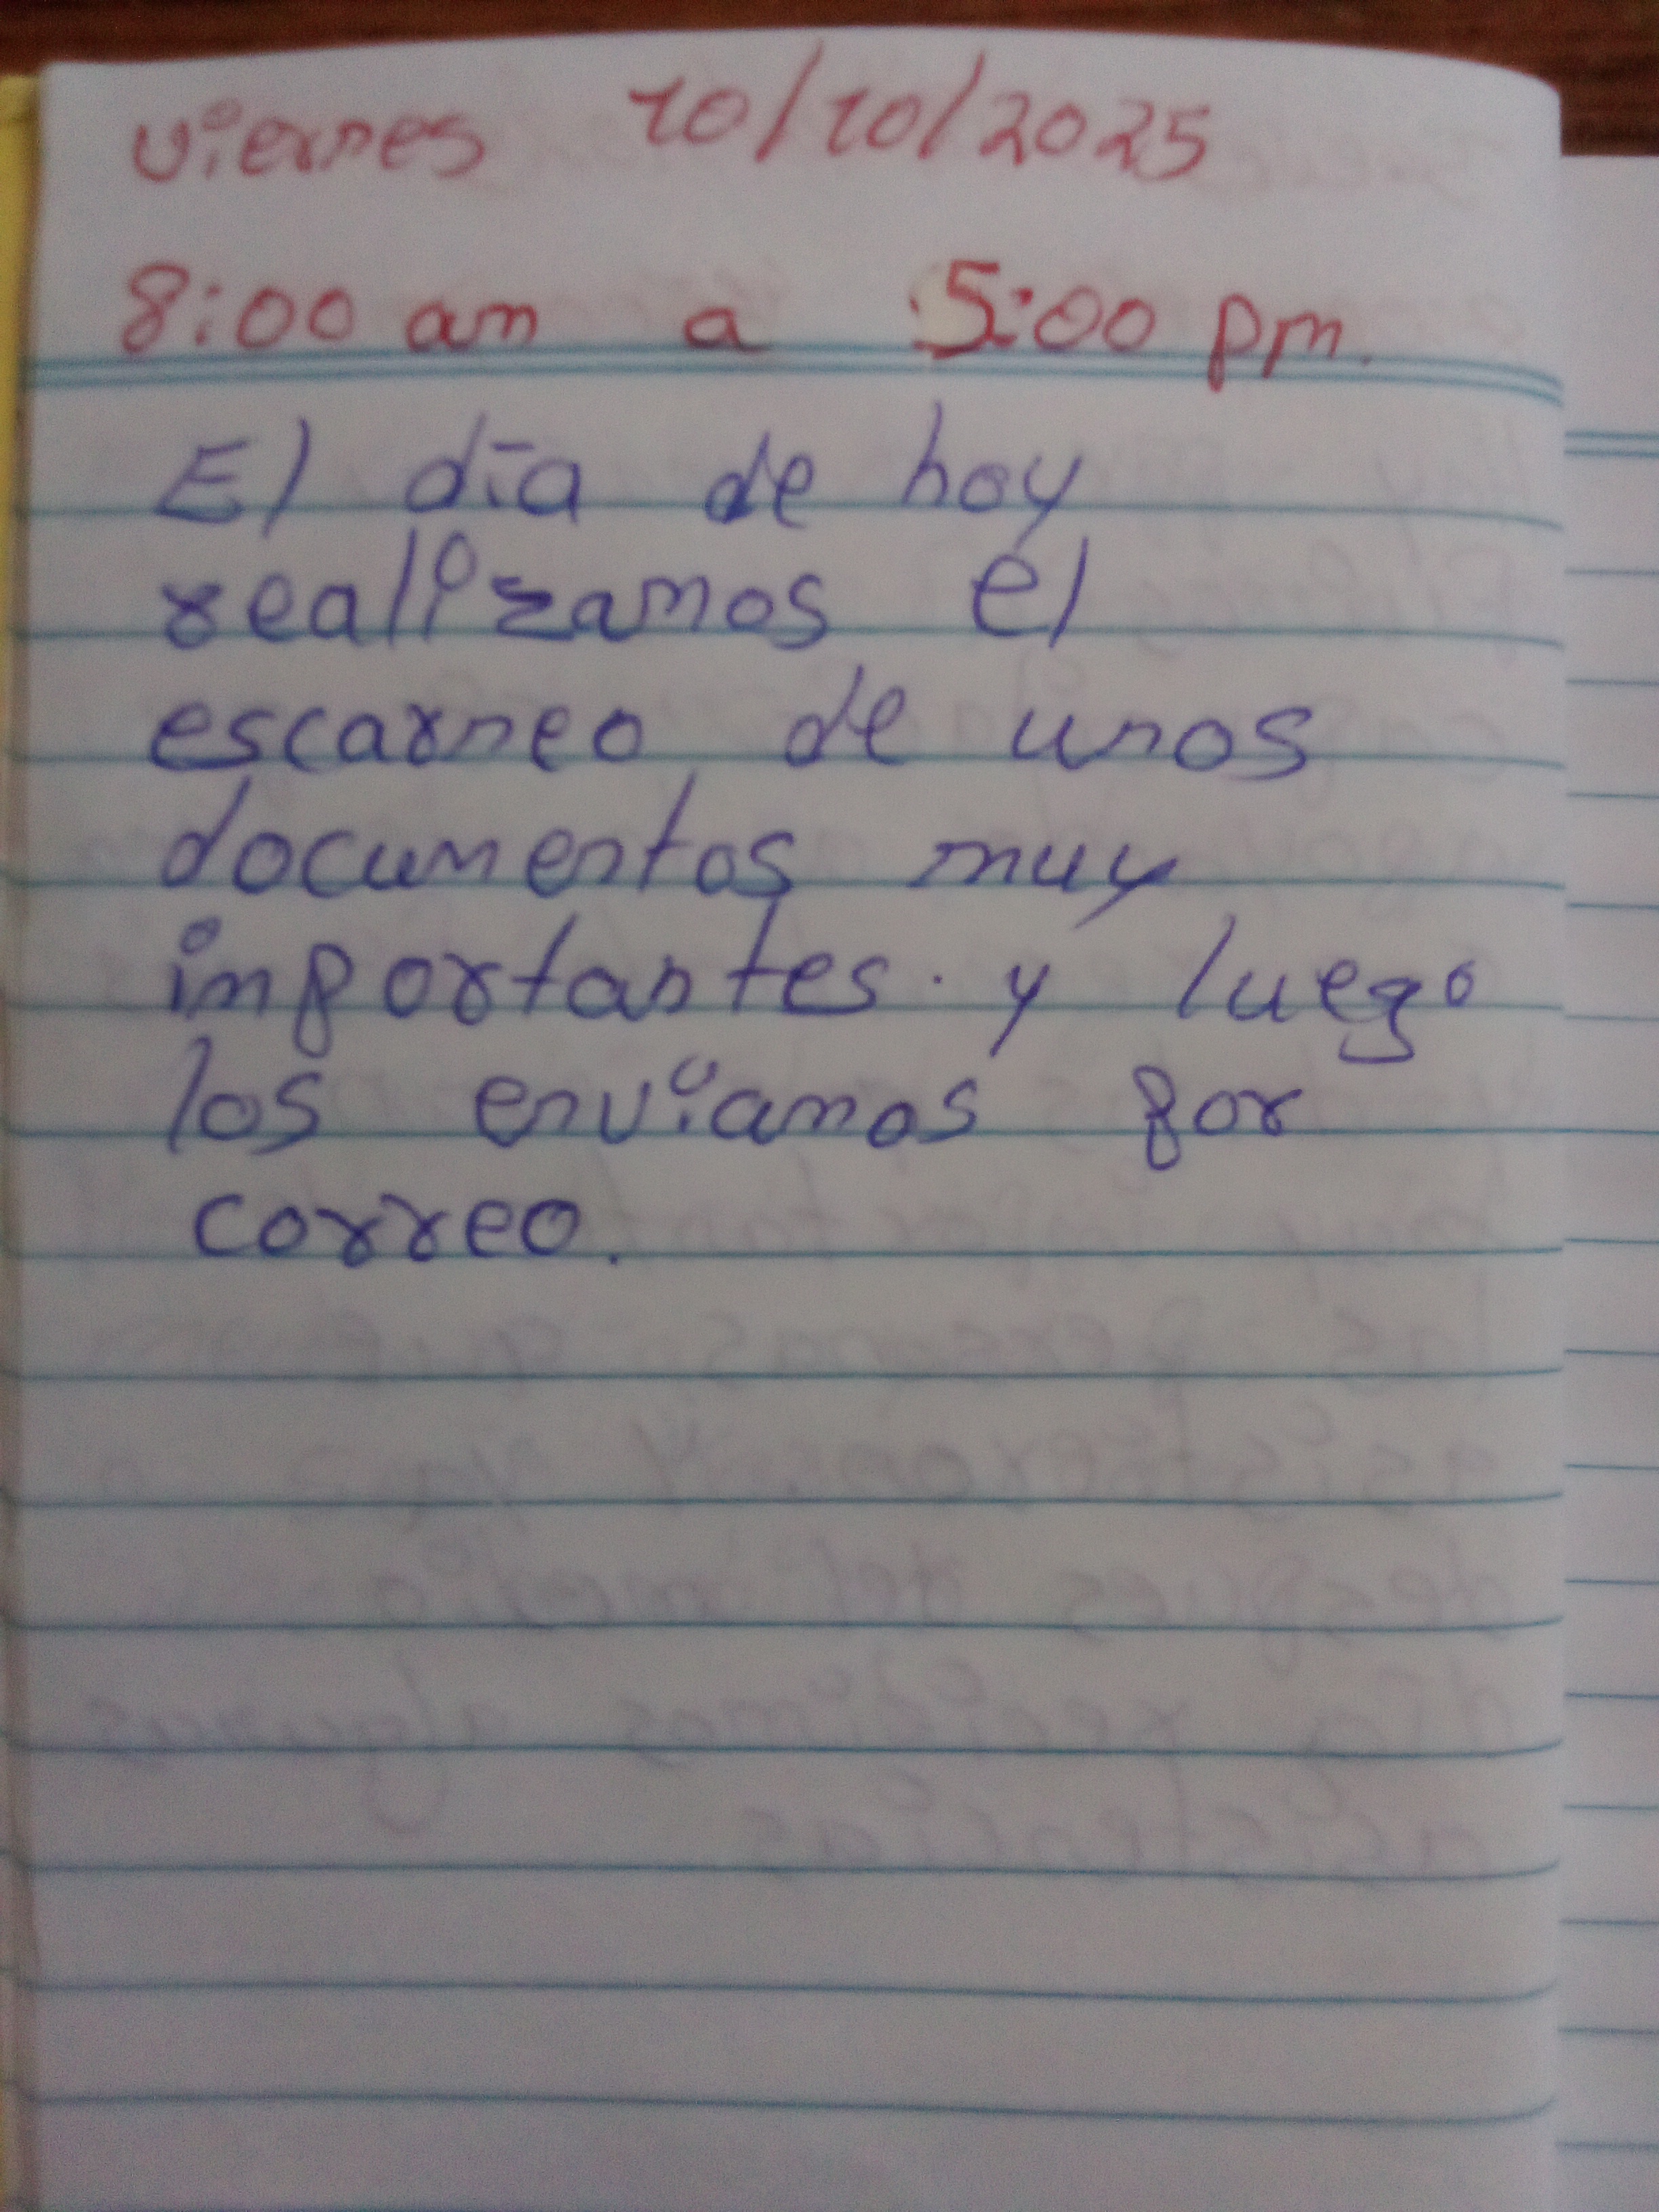 viernes 10/10/2025
8:00 am a 5:00 pm.
El día de hoy
realizamos el
escarneo de unos
documentos muy
importantes. y luego
los enviamos por
correo.